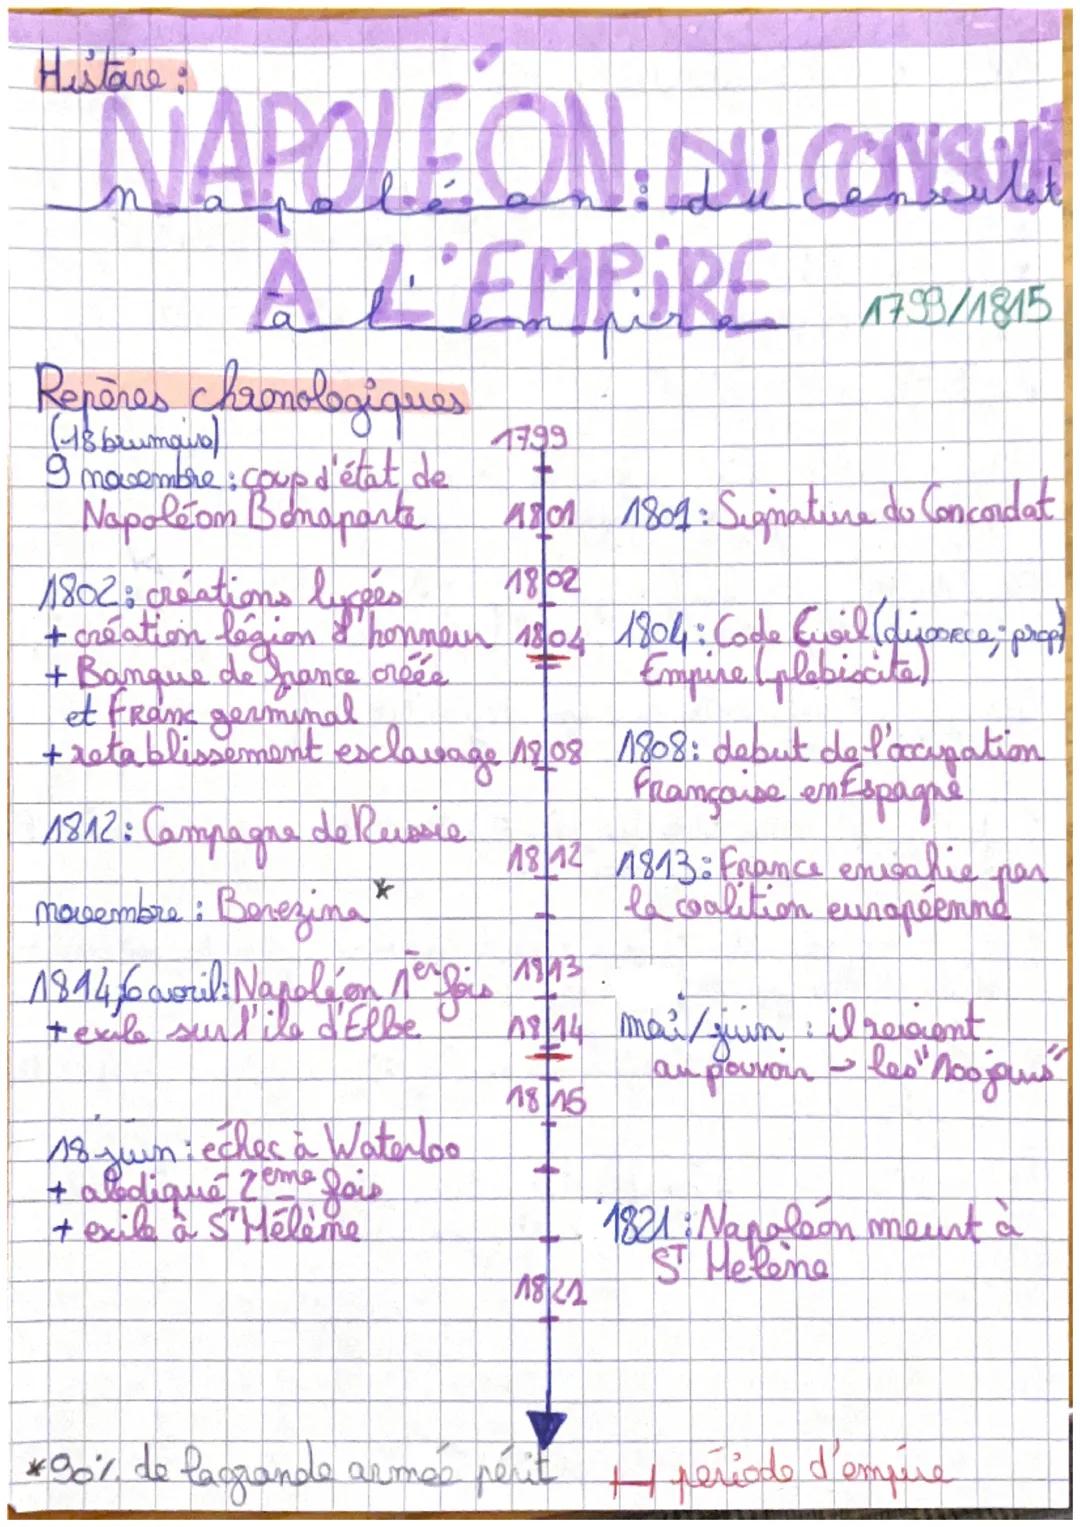 Histoire :
NAPOLÉON : DU CONSULAT
napoléon : du consulat
À L'EMPIRE
à l'empire
1799/1815
Repères chronologiques
(18 brumaire)
9 novembre : coup d'état de
Napoléon Bonaparte
1802 : créations lycées
+ création légion d'honneur
+ Banque de france créée
et Franc germinal
+ retablissement esclavage
1812 : Campagne de Russie
novembre : Berezina *
1814, 6 avril : Napoléon 1er fois
+ exile sur l'ile d'Elbe
18 juin : échec à Waterloo
+ abdiqué 2ème fois
+ exile à ST Hélème
1799
1801
1802
1804
1808
1812
1813
1814
1815
1821
1801 : Signature du Concordat
1804 : Code Civil (divorce ; prop)
Empire (plebiscite)
1808 : debut de l'occupation
Française en Espagne
1813 : France envahie par
la coalition européenne
mai/juin : il revient
au pouvoir → les "100 jours"
1821 : Napoléon meurt à
ST Helène
*90% de la grande armée périt
période d'empire